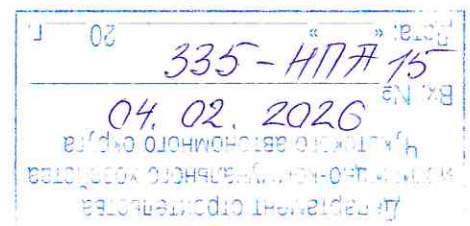 Департамент строительства
и жилищно-коммунального хозяйства
Чукотского автономного округа
Вх. №
04. 02. 2026
335-НПА 15
Дата: « » 20 г.